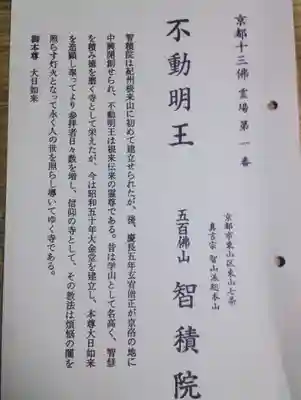 京都十三佛霊場第一番
不動明王
京都市東山区東山七条
真言宗智山派総本山
五百佛山 智積院
智積院は紀州根来山に初めて建立せられたが、後、慶長五年玄宥僧正が京洛の地に
中興開創せられ、不動明王は根来伝来の霊尊である。昔は学山として名高く、智慧
を積み徳を磨く寺として栄えたが、今は昭和五十年大金堂を建立し、本尊大日如来
を造顕し奉ってより参拝者日々数を増し、信仰の寺として、その教法は煩悩の闇を
照らす灯火となって永く人の世を照らし導いてゆく寺である。
御本尊 大日如来